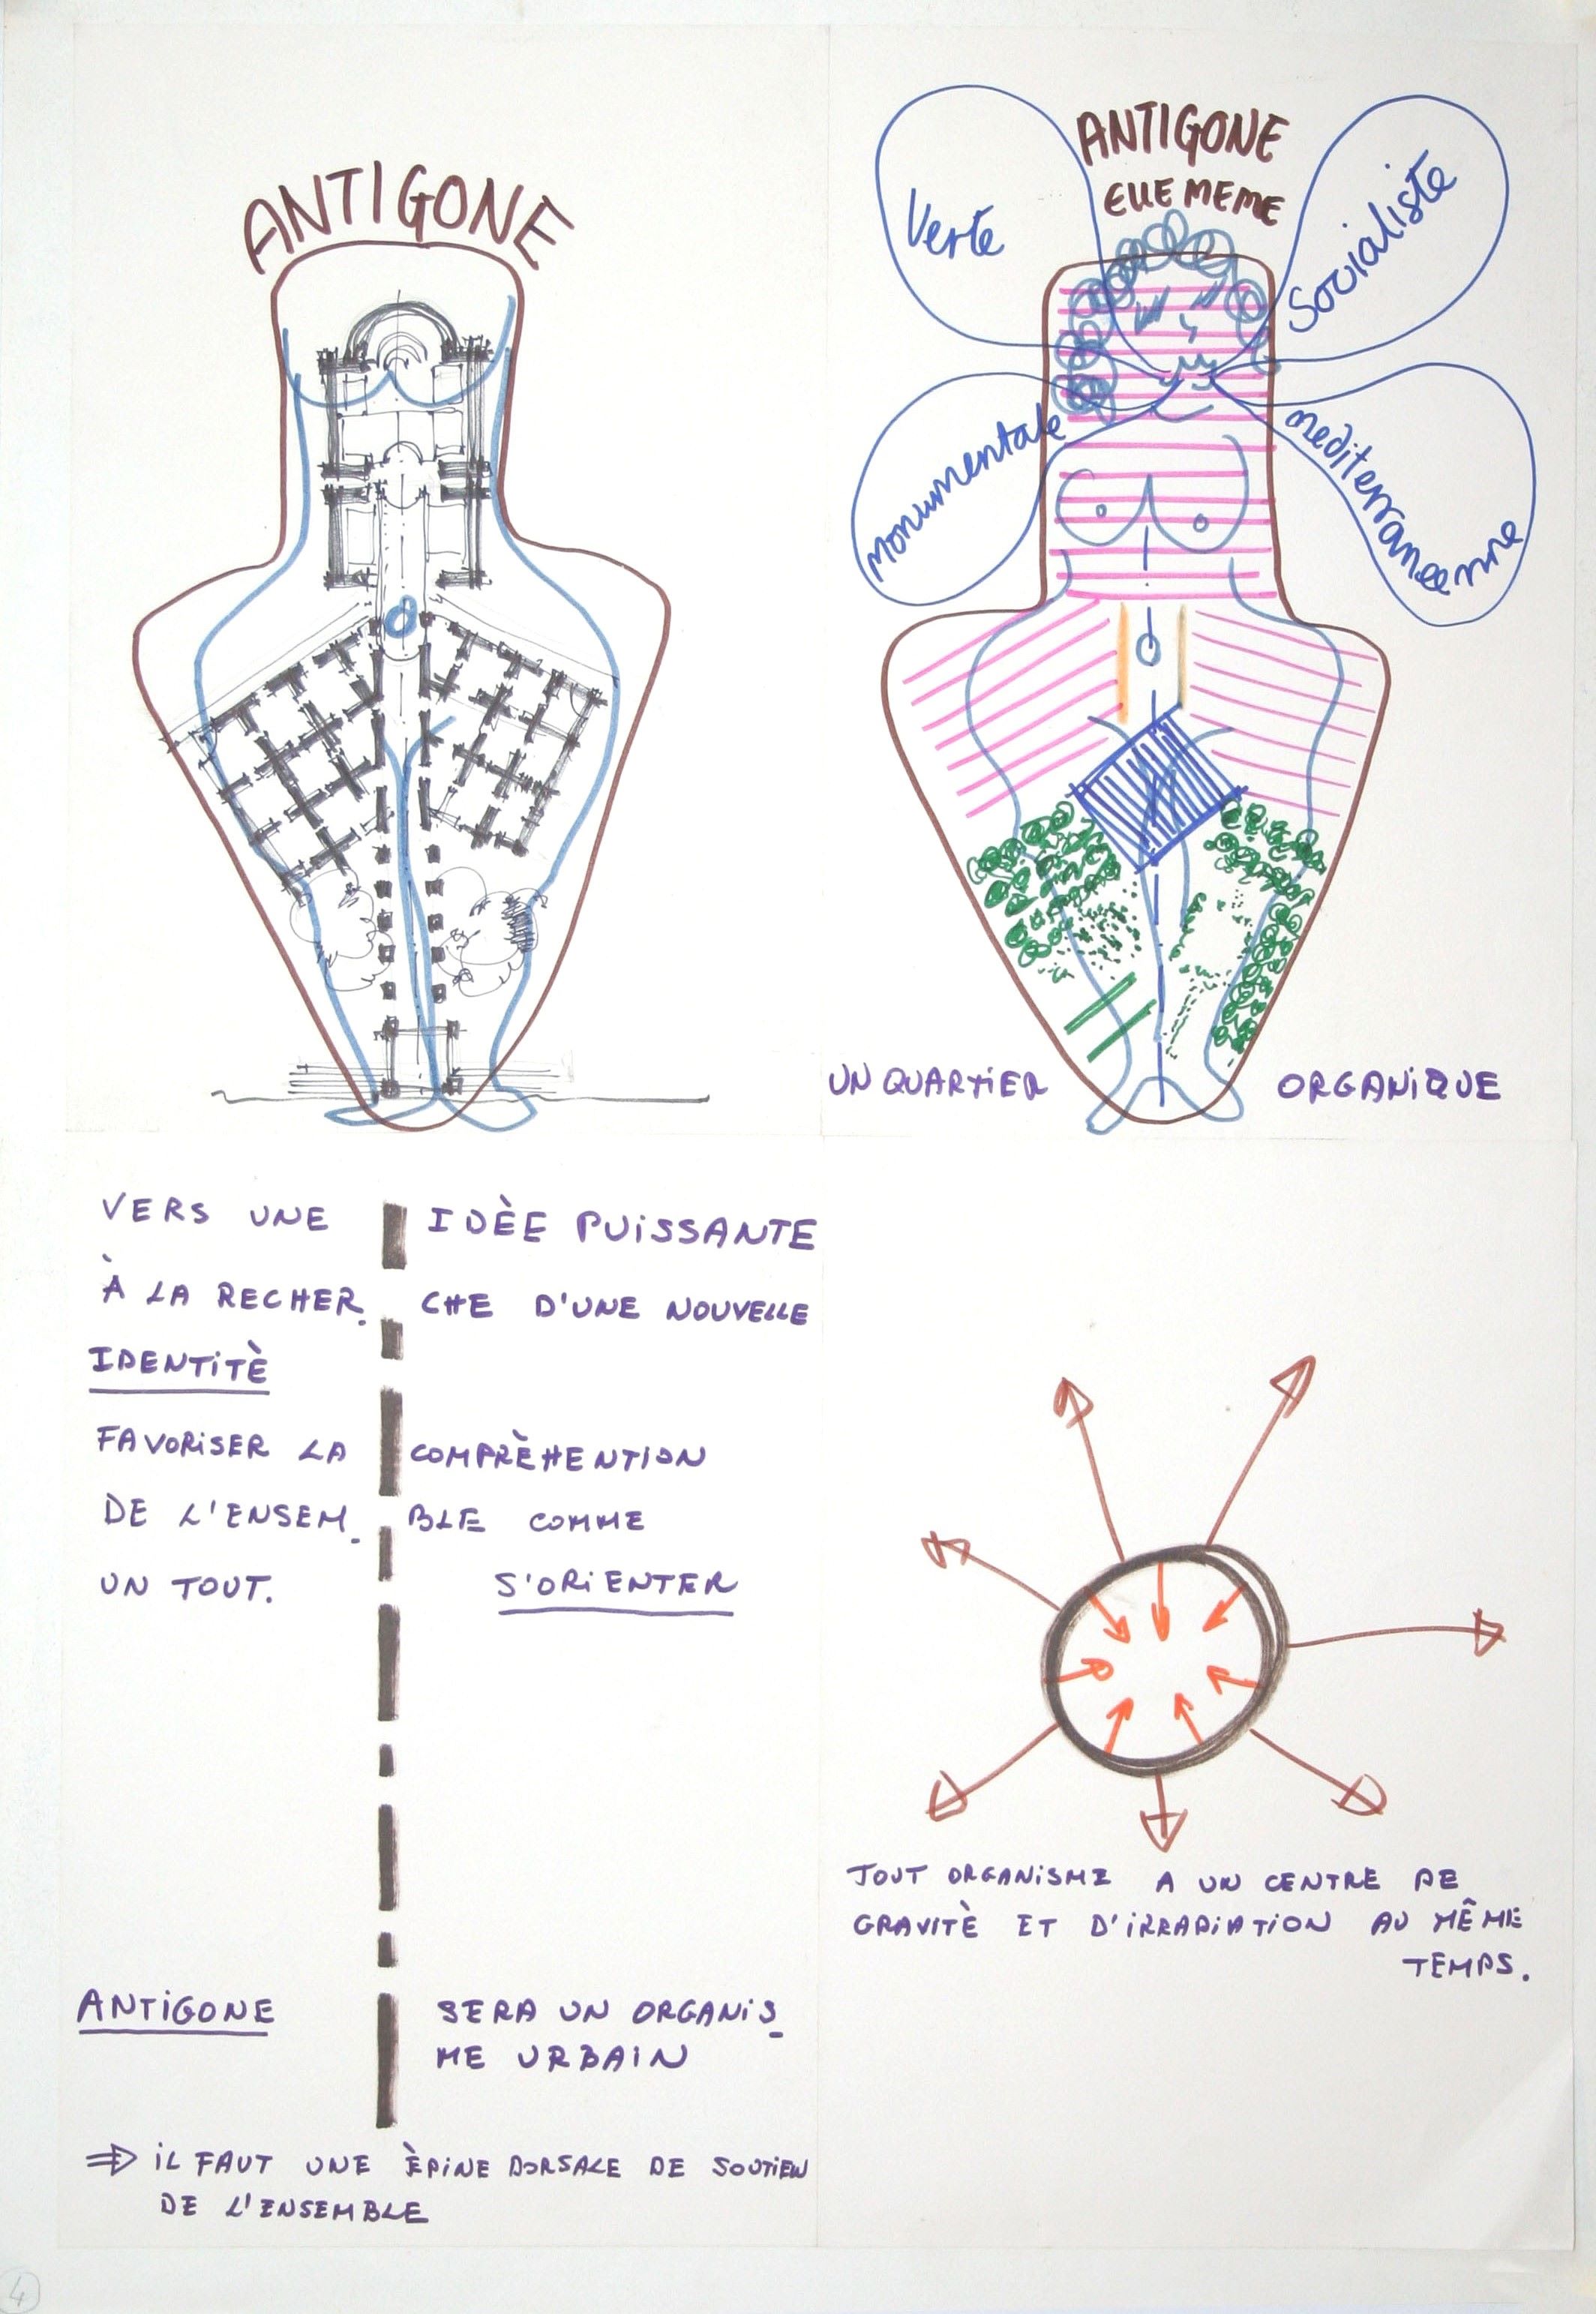 ANTIGONE
ANTIGONE
ELLE MEME
Verte
Socialiste
monumentale
mediterranneenne
UN QUARTIER ORGANIQUE
VERS UNE IDÈE PUISSANTE
À LA RECHER- CHE D'UNE NOUVELLE
IDENTITÈ
FAVORISER LA COMPRÈHENTION
DE L'ENSEM- BLE COMME
UN TOUT. S'ORIENTER
ANTIGONE SERA UN ORGANIS-
ME URBAIN
⇒ IL FAUT UNE ÈPINE DORSALE DE SOUTIEN
DE L'ENSEMBLE
TOUT ORGANISME A UN CENTRE DE
GRAVITÈ ET D'IRRADIATION AU MÊME
TEMPS.
4